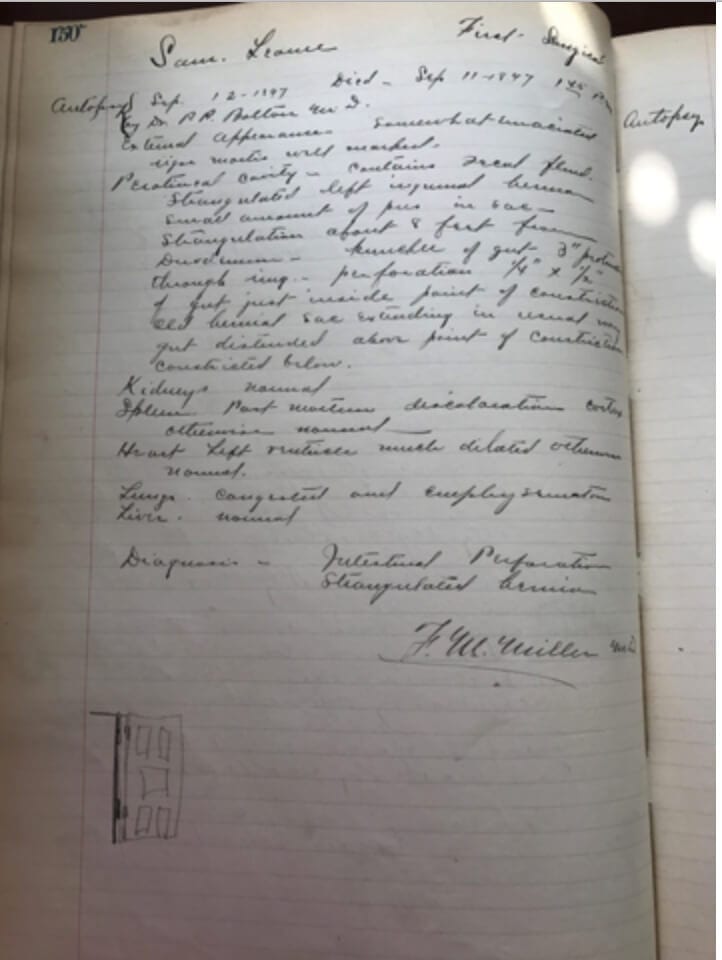 150
Sam. First Surgical
Autopsy Sep. 12-1897 Died - Sep 11-1897 1 45 PM
By Dr. P.R. Bolton M.D.
External Appearance Somewhat emaciated
rigor mortis well marked.
Peritoneal cavity - contains fecal fluid.
Strangulated left inguinal hernia
Small amount of pus in sac -
Strangulation about 8 feet from
Duodenum - knuckle of gut 3"
through ring - perforation 1/4" x 1/2"
of gut just inside point of constriction
old hernial sac extending in usual way
gut distended above point of constriction
constricted below.
Kidneys normal
Spleen Post mortem discoloration
otherwise normal
Heart Left ventricle much dilated otherwise
normal.
Lungs. congested and emphysematous
Liver. normal
Diagnosis - Intestinal Perforation
Strangulated hernia
F. M. Miller M.D.
Autopsy